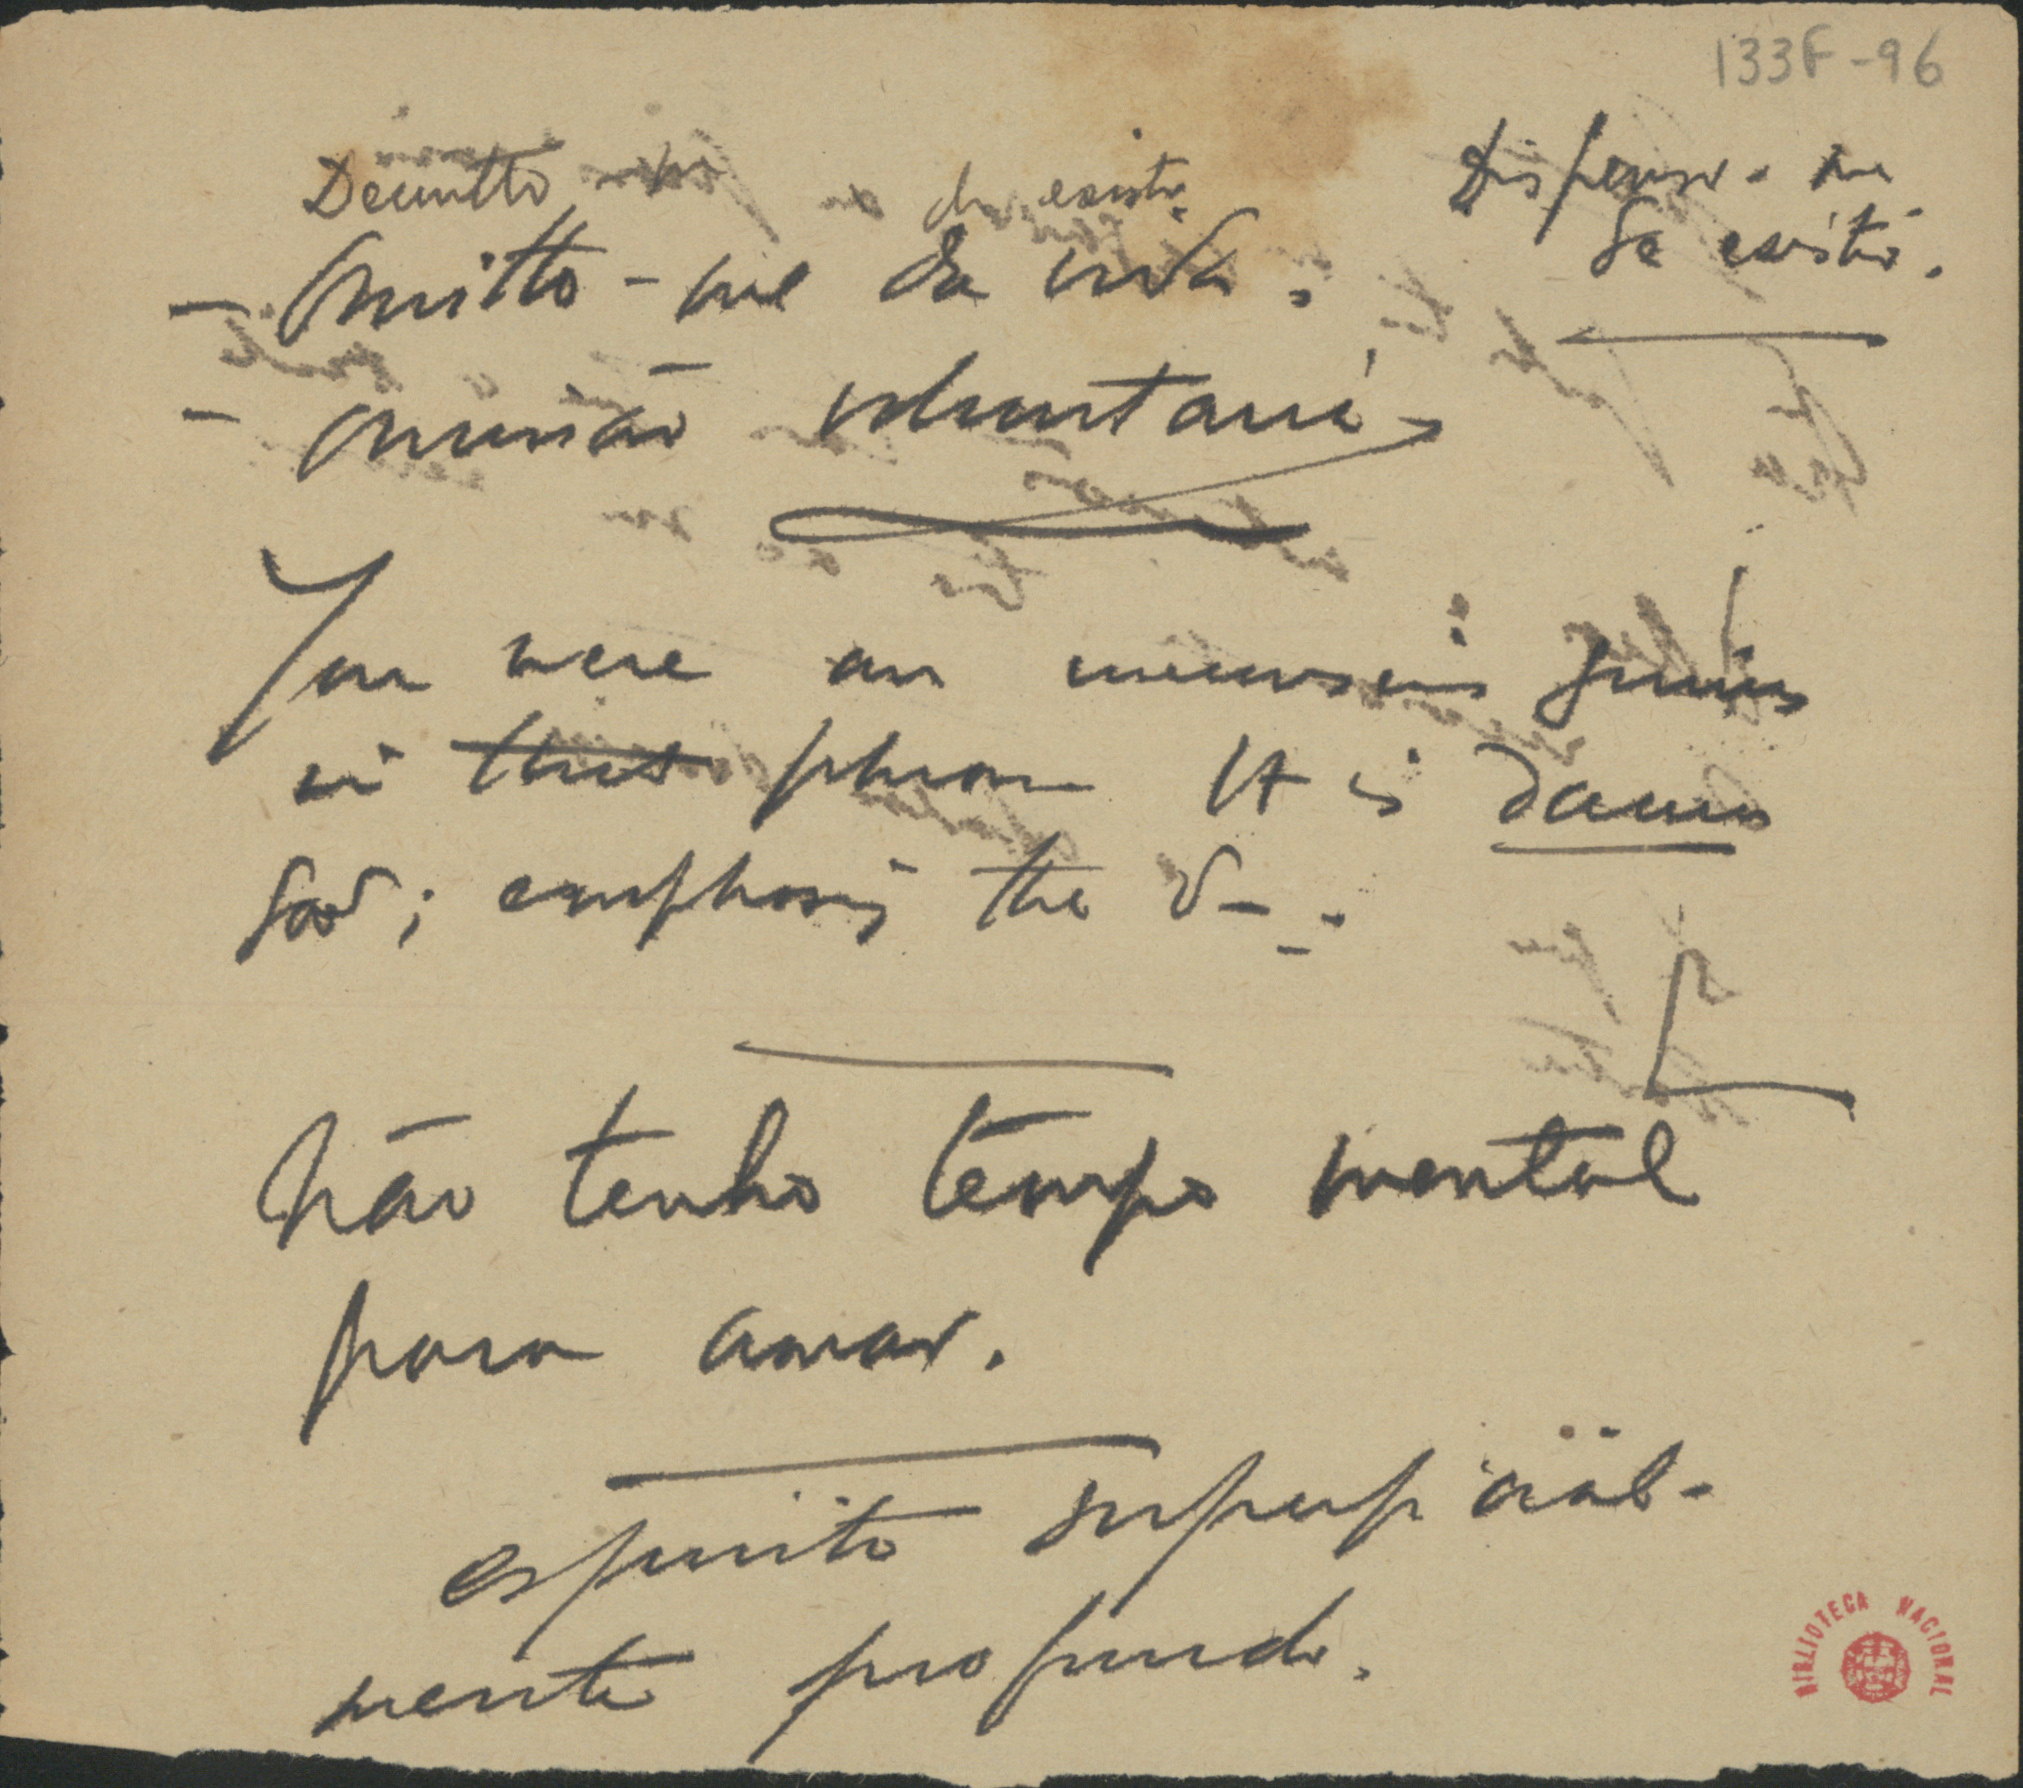 133F-96
Demitto-me de existir.
Dispenso-me
de existir.
- Omitto-me da vida.
- omissão voluntaria
You were an unconscious genius
in that phrase It is damn
God; emphasis the d--.
Não tenho tempo mental
para amar.
espirito superficial-
mente profundo.
BIBLIOTECA NACIONAL